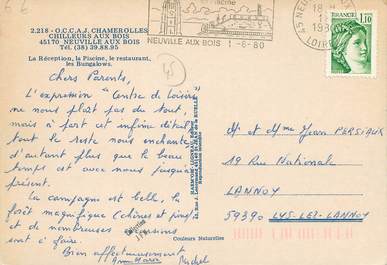 2.218 - O.C.C.A.J. CHAMEROLLES
CHILLEURS AUX BOIS
45170 NEUVILLE AUX BOIS
Tél. (38) 39.88.95
La Réception, la Piscine, le restaurant,
les Bungalows.
Chers Parents,
L'expression "Centre de Loisirs"
ne nous plaît pas du tout,
mais à part cet infime détail
tout le reste nous enchante
d'autant plus que le beau
temps est avec nous jusqu'à
présent.
La campagne est belle, la
forêt magnifique (chênes et pins)
et de nombreuses
sont à faire.
Bien affectueusement
Michel
Couleurs Naturelles
Piscine
NEUVILLE AUX BOIS 1-8-80
45 NEU
18 H
1980
LOIRE
1,10
Mr et Mme Jean PERSIAUX
19 Rue Nationale
LANNOY
59390 LYS-LEZ-LANNOY
45